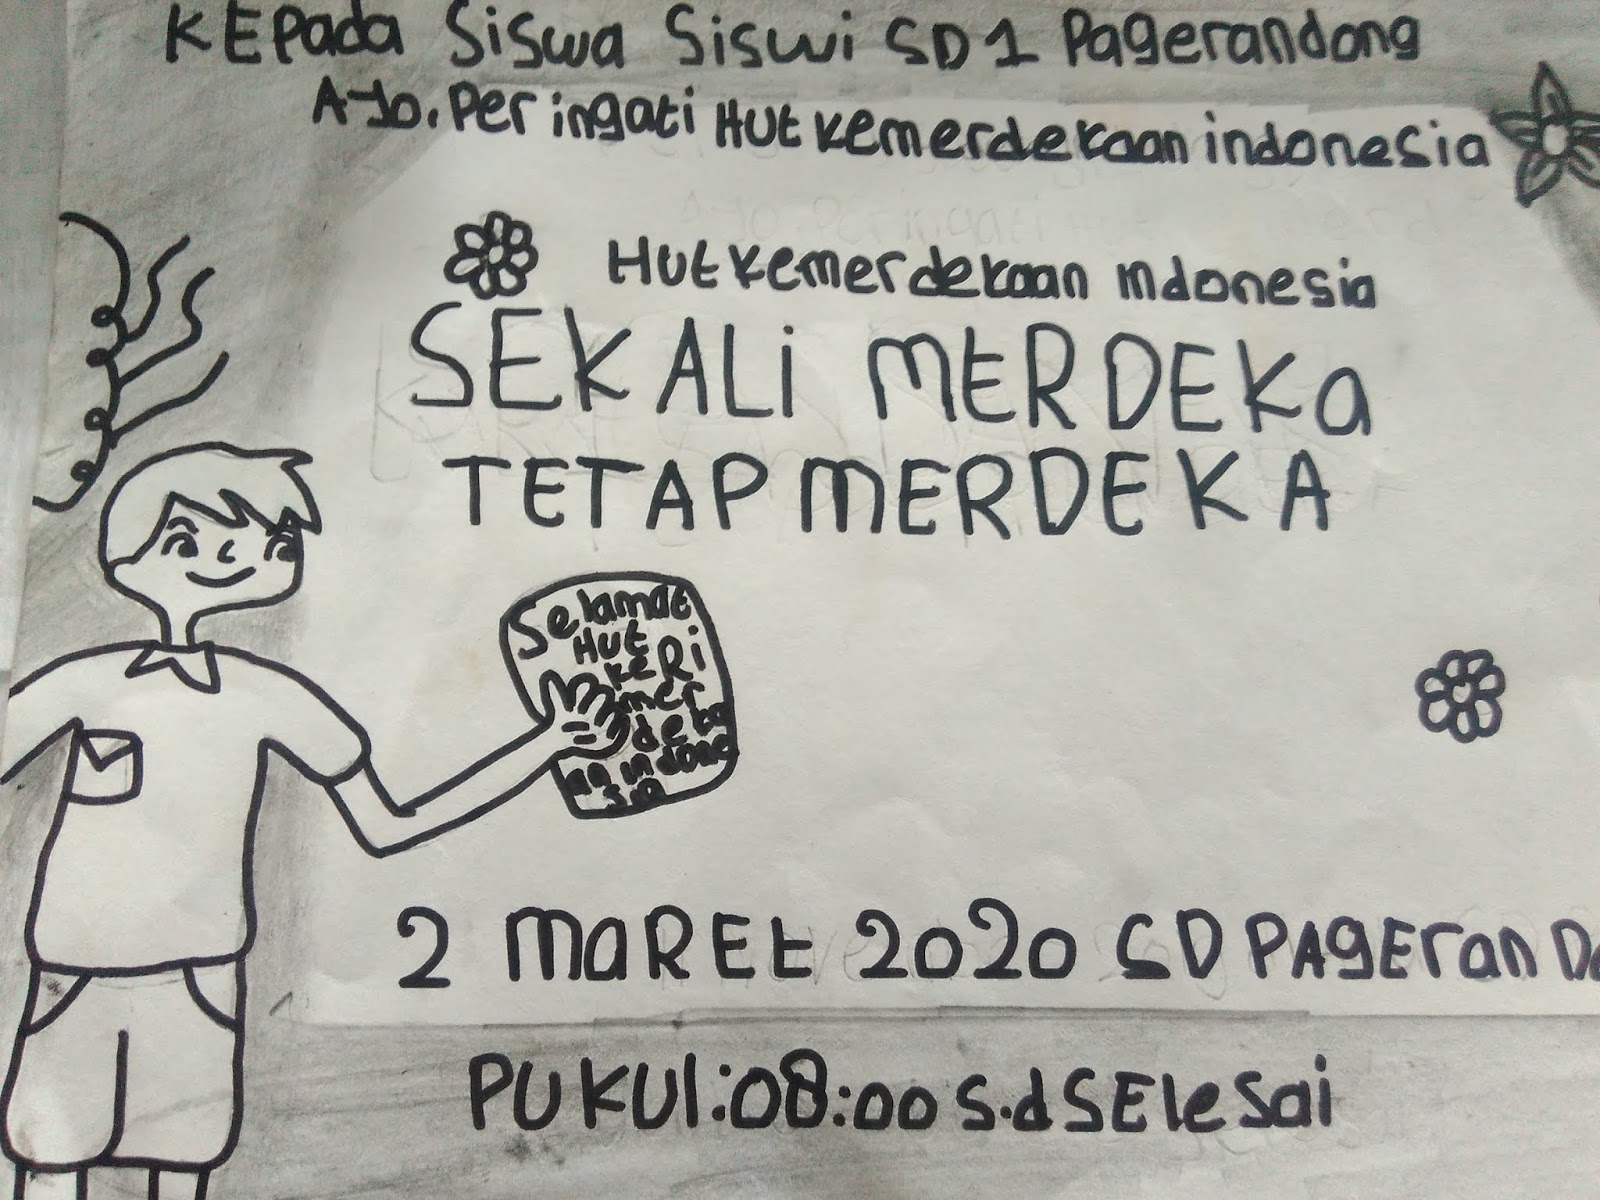 KEPada Siswa Siswi SD 1 Pagerandong
AYo. Peringati Hut kemerdekaan indonesia
Hut kemerdekaan indonesia
SEKALi MERDEKa
TETAP MERDEKA
Selamat
Hut
ke Ri
mer
deka
an indone
sia
2 MaREt 2020 SD PAgEran Do
PUKUl:08:00 S.d SEleSai